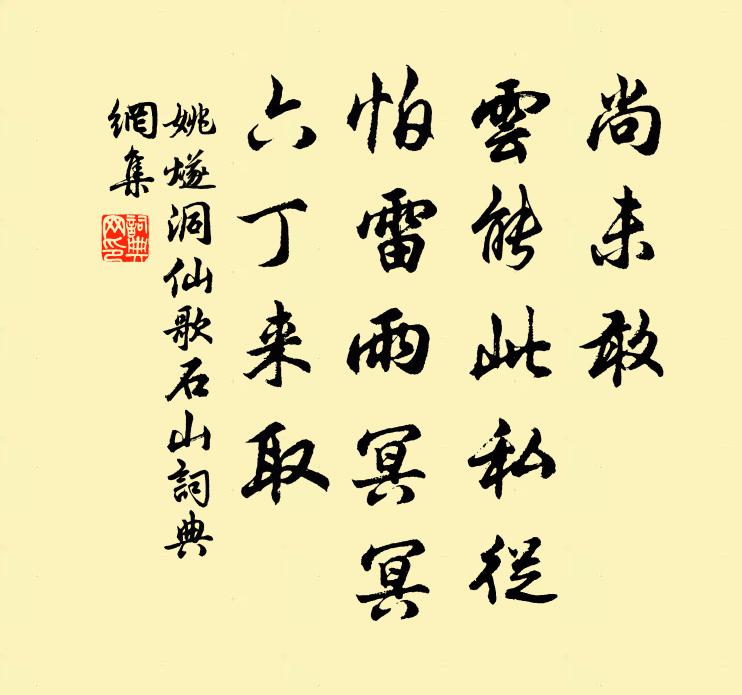 尚未敢
雲能此私從
怕雷雨冥冥
六丁来取
姚燧洞仙歌石山詞典
網集
詞典
网印